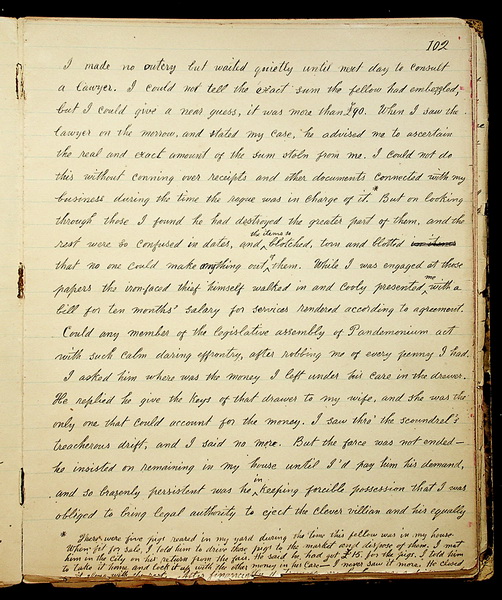 102
I made no outcry but waited quietly until next day to consult
a lawyer. I could not tell the exact sum the fellow had embezzled,
but I could give a near guess, it was more than £90. When I saw the
lawyer on the morrow, and stated my case, he advised me to ascertain
the real and exact amount of the sum stoln from me. I could not do
this without conning over receipts and other documents connected with my
business during the time the rogue was in charge of it.* But on looking
through those I found he had destroyed the greater part of them, and the
rest were so confused in dates, and the items so blotched, torn and blotted
that no one could make anything out of them. While I was engaged at those
papers the iron-faced thief himself walked in and cooly presented me with a
bill for ten months' salary for services rendered according to agreement.
Could any member of the Legislative assembly of Pandemonium act
with such calm daring effrontry, after robbing me of every penny I had.
I asked him where was the money I left under his care in the drawer.
He replied he give the keys of that drawer to my wife, and she was the
only one that could account for the money. I saw thro' the scoundrel's
treacherous drift, and I said no more. But the farce was not ended—
he insisted on remaining in my house until I'd pay him his demand,
and so brazenly persistent was he in keeping forcible possession that I was
obliged to bring legal authority to eject the clever villian and his equally
* There were five pigs reared in my yard during the time this fellow was in my house.
When fit for sale, I told him to drive those pigs to the market and dispose of them, I met
him on the City on his return from the fair. He said he had got £15. for the pigs. I told him
to take it home and lock it up with the other money in his care— I never saw it more. He closed